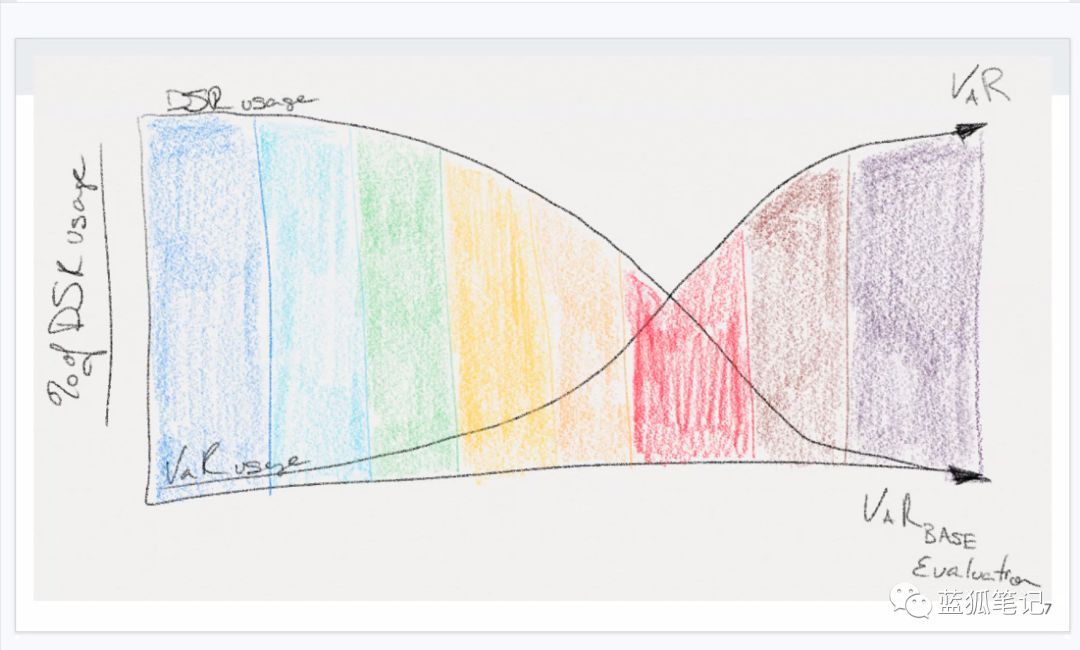 DSR usage
VAR
% of DSR usage
VaR usage
VAR BASE
Evaluation
蓝狐笔记
7